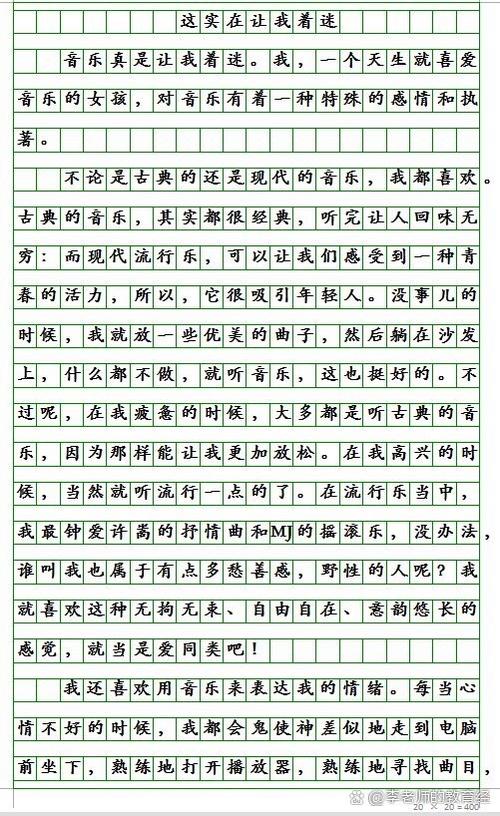 这实在让我着迷
音乐真是让我着迷。我，一个天生就喜爱
音乐的女孩，对音乐有着一种特殊的感情和执
著。
不论是古典的还是现代的音乐，我都喜欢。
古典的音乐，其实都很经典，听完让人回味无
穷：而现代流行乐，可以让我们感受到一种青
春的活力，所以，它很吸引年轻人。没事儿的
时候，我就放一些优美的曲子，然后躺在沙发
上，什么都不做，就听音乐，这也挺好的。不
过呢，在我疲惫的时候，大多都是听古典的音
乐，因为那样能让我更加放松。在我高兴的时
候，当然就听流行一点的了。在流行乐当中，
我最钟爱许嵩的抒情曲和MJ的摇滚乐，没办法，
谁叫我也属于有点多愁善感，野性的人呢？我
就喜欢这种无拘无束、自由自在、意韵悠长的
感觉，就当是爱同类吧！
我还喜欢用音乐来表达我的情绪。每当心
情不好的时候，我都会鬼使神差似地走到电脑
前坐下，熟练地打开播放器，熟练地寻找曲目，
@李老师的教育经
20 × 20 = 400